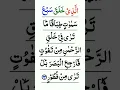 الَّذِيْ خَلَقَ سَبْعَ
سَمٰوٰتٍ طِبَاقًا مَا
تَرٰى فِيْ خَلْقِ
الرَّحْمٰنِ مِنْ تَفٰوُتٍ
فَارْجِعِ الْبَصَرَ هَلْ
تَرٰى مِنْ فُطُوْرٍ